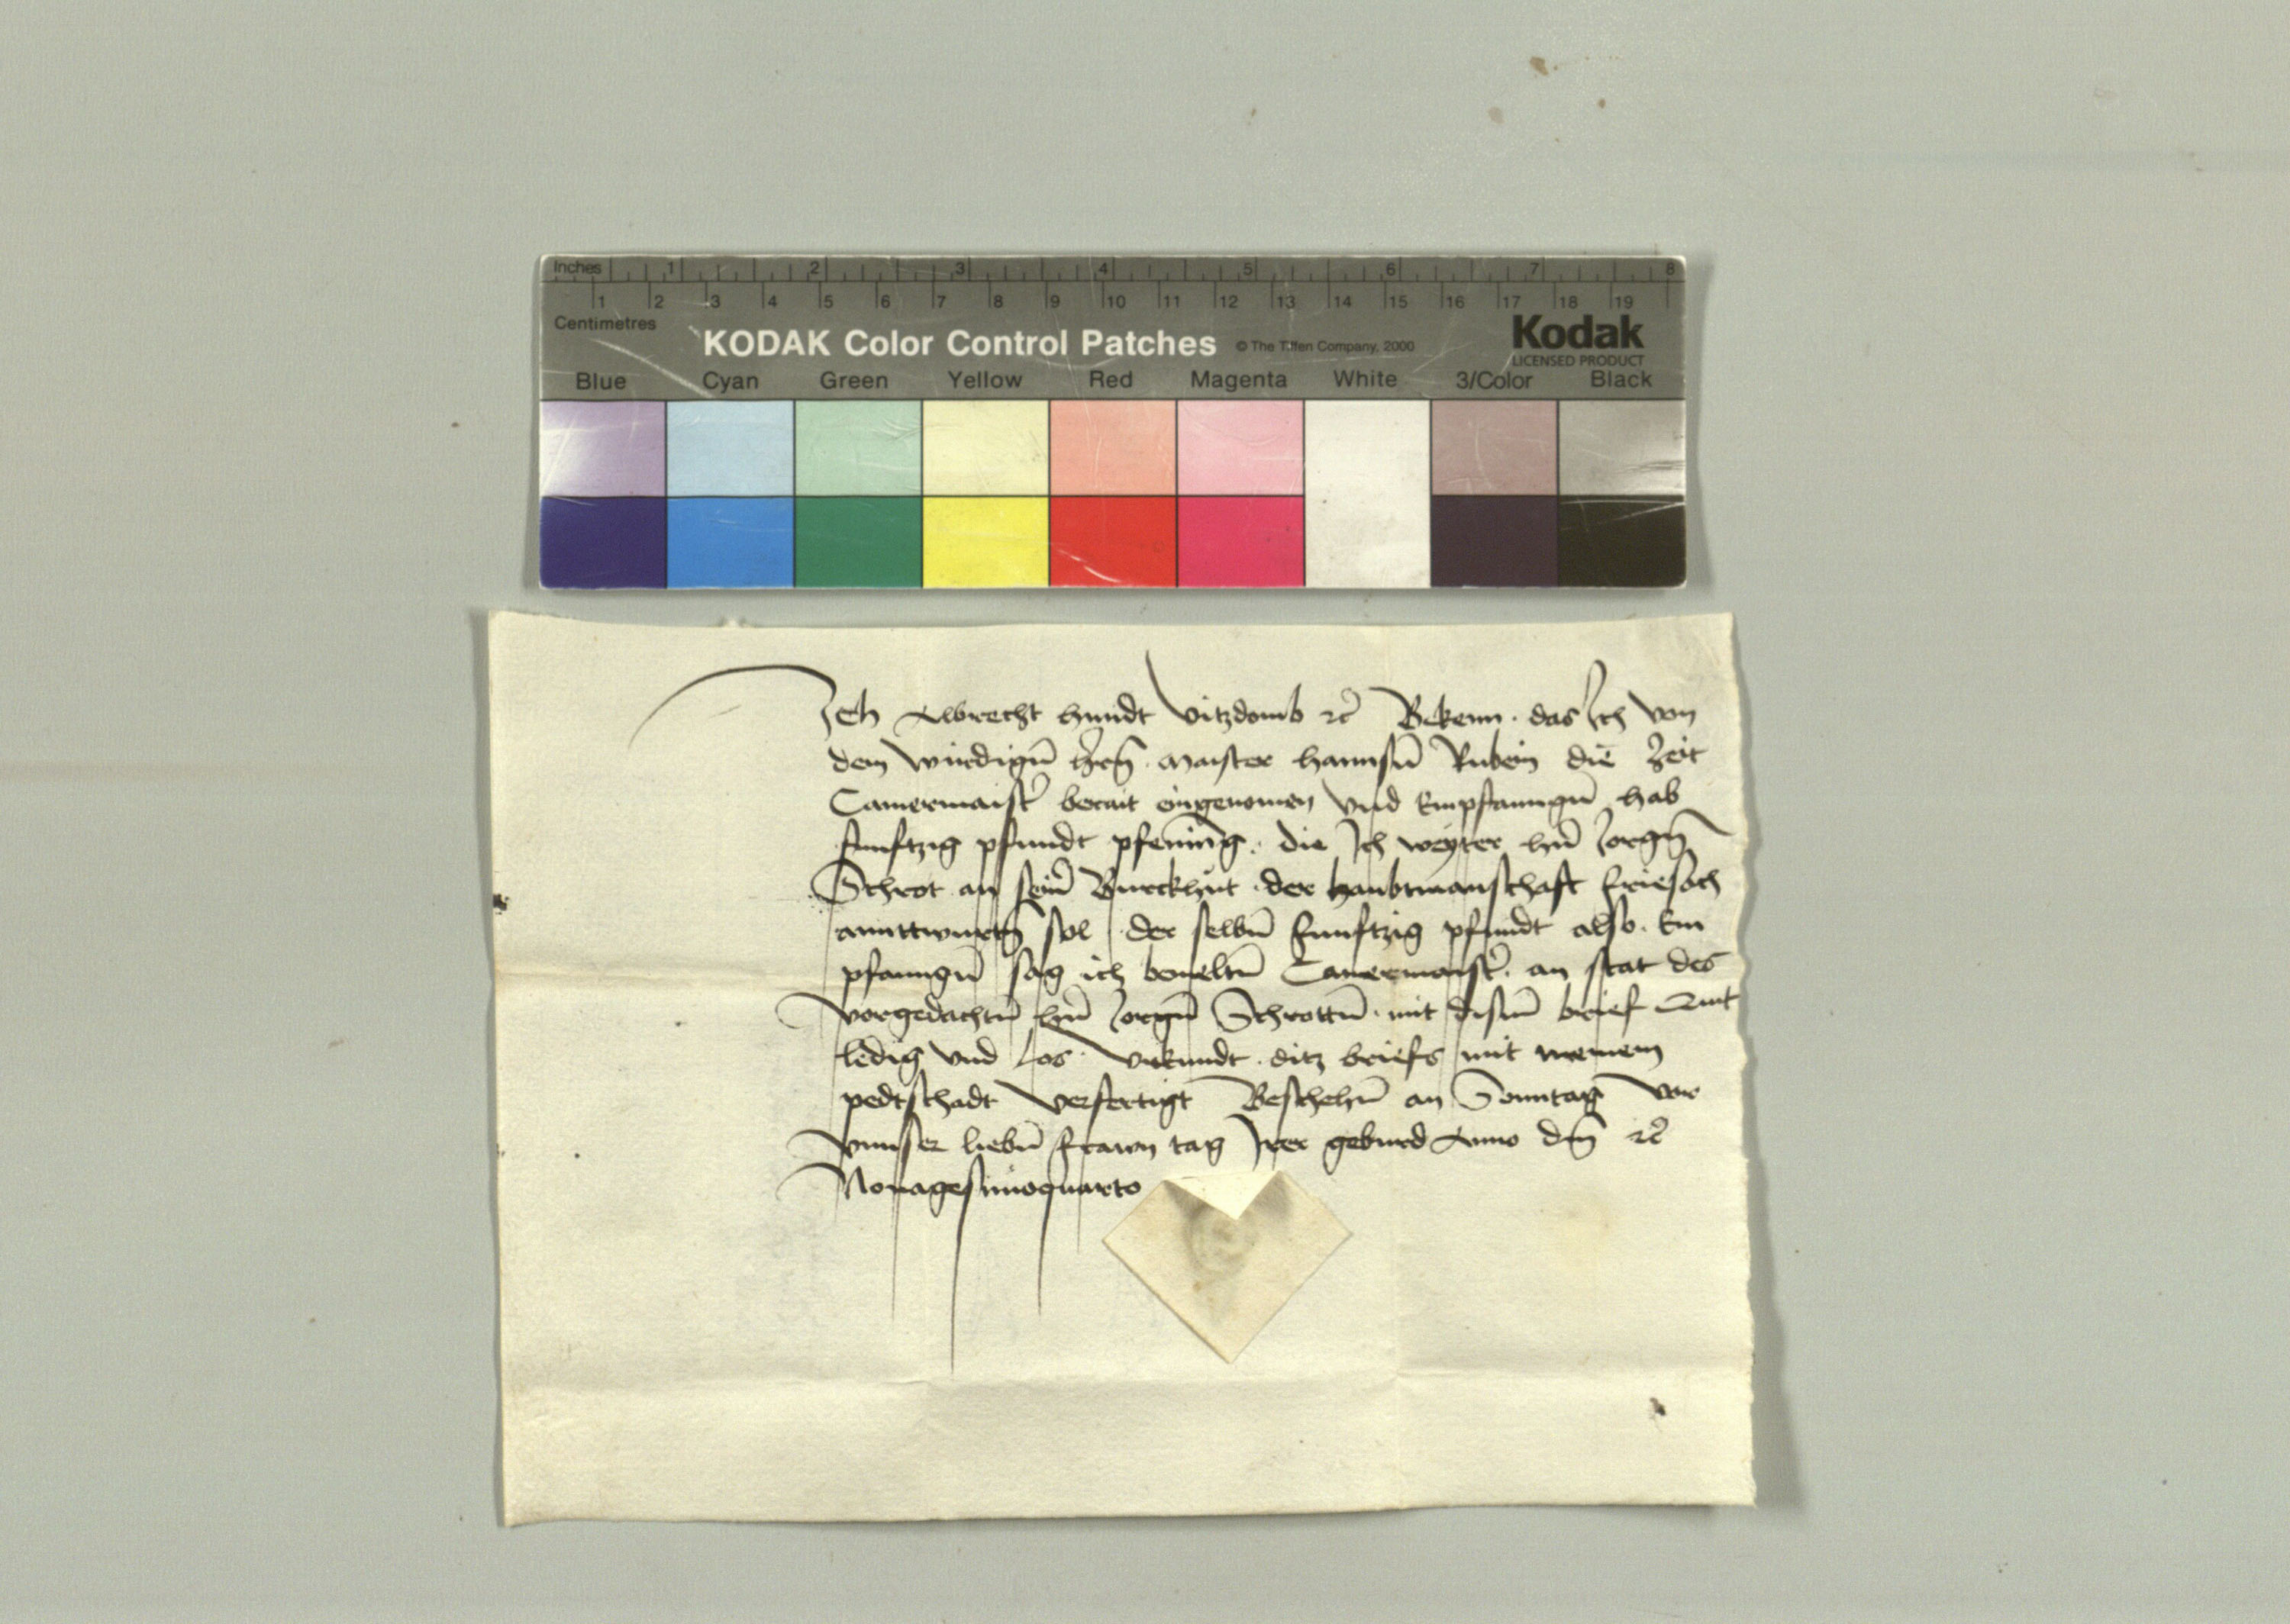 Inches 1 2 3 4 5 6 7 8
1 2 3 4 5 6 7 8 9 10 11 12 13 14 15 16 17 18 19
Centimetres
KODAK Color Control Patches © The Tiffen Company, 2000 Kodak
LICENSED PRODUCT
Blue Cyan Green Yellow Red Magenta White 3/Color Black
Ich Albrecht Hundt Vitzdomb ꝛc̄ Bekenn · das Ich von
dem wirdign̄ hern̄ · Maister Hannsn̄ Rubein die Zeit
Camermaist̄ berait eingenomen vnd Empfanngn̄ hab
funftzig pfundt pfening · die Ich weyter hn̄ Jorgn̄
Schrot an sein̄ Burckhůt · der haubtmanschaft Friesach
anntwurtn̄ sol · der selbn̄ funftzig pfundt also · Em
pfanngn̄ sag ich bemeltn̄ Camermaist̄ · an stat des
vorgedachtn̄ hn̄ Jorgn̄ Schrottn̄ · mit dism̄ brief Quit
ledig vnd Los · Vrkundt · ditz briefs mit meinem
pedtschadt verfertigt Beschehn̄ an Sonntag vor
vnnser liebn̄ frawn tag Irer geburd Anno dn̄j ꝛc̄
Nonagesimoquarto